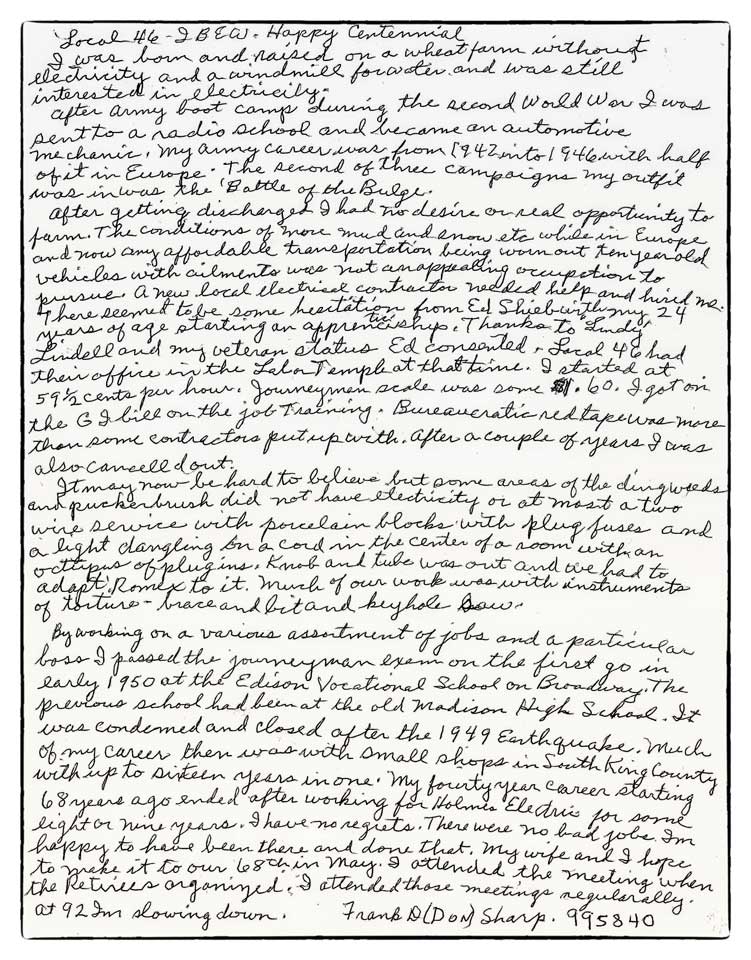 Local 46 - I B E W. Happy Centennial
I was born and raised on a wheat farm without
electricity and a windmill for water and was still
interested in electricity.
After Army boot camp during the second World War I was
sent to a radio school and became an automotive
mechanic. My army career was from 1942 into 1946 with half
of it in Europe. The second of three campaigns my outfit
was in was the 'Battle of the Bulge.
After getting discharged I had no desire or real opportunity to
farm. The conditions of more mud and snow etc while in Europe
and now any affordable transportation being worn out ten year old
vehicles with ailments was not an appealing occupation to
pursue. A new local electrical contractor needed help and hired me.
There seemed to be some hesitation from Ed Shieburth my 24
years of age starting an apprenticiship. Thanks to Lindy
Lindell and my veteran status Ed consented. Local 46 had
their office in the Labor Temple at that time. I started at
59 1/2 cents per hour. Journeymen scale was some $1.60. I got on
the G I bill on the job Training. Bureaucratic red tape was more
than some contractors put up with. After a couple of years I was
also cancell d out.
It may now be hard to believe but some areas of the ding weeds
and pucker brush did not have electricity or at most a two
wire service with porcelain blocks with plug fuses and
a light dangling on a cord in the center of a room with an
octupus of plug ins. Knob and tube was out and we had to
adapt Romex to it. Much of our work was with instruments
of torture - brace and bit and keyhole saw.
By working on a various assortment of jobs and a particular
boss I passed the journeyman exam on the first go in
early 1950 at the Edison Vocational School on Broadway. The
previous school had been at the old Madison High School. It
was condemed and closed after the 1949 Earthquake. Much
of my career then was with small shops in South King County
with up to sixteen years in one. My fourty year career starting
68 years ago ended after working for Holmes Electric for some
eight or nine years. I have no regrets. There were no bad jobs. Im
happy to have been there and done that. My wife and I hope
to make it to our 68th in May. I attended the meeting when
the Retirees organized. I attended those meetings regularally.
at 92 Im slowing down. Frank D (Don) Sharp. 995840